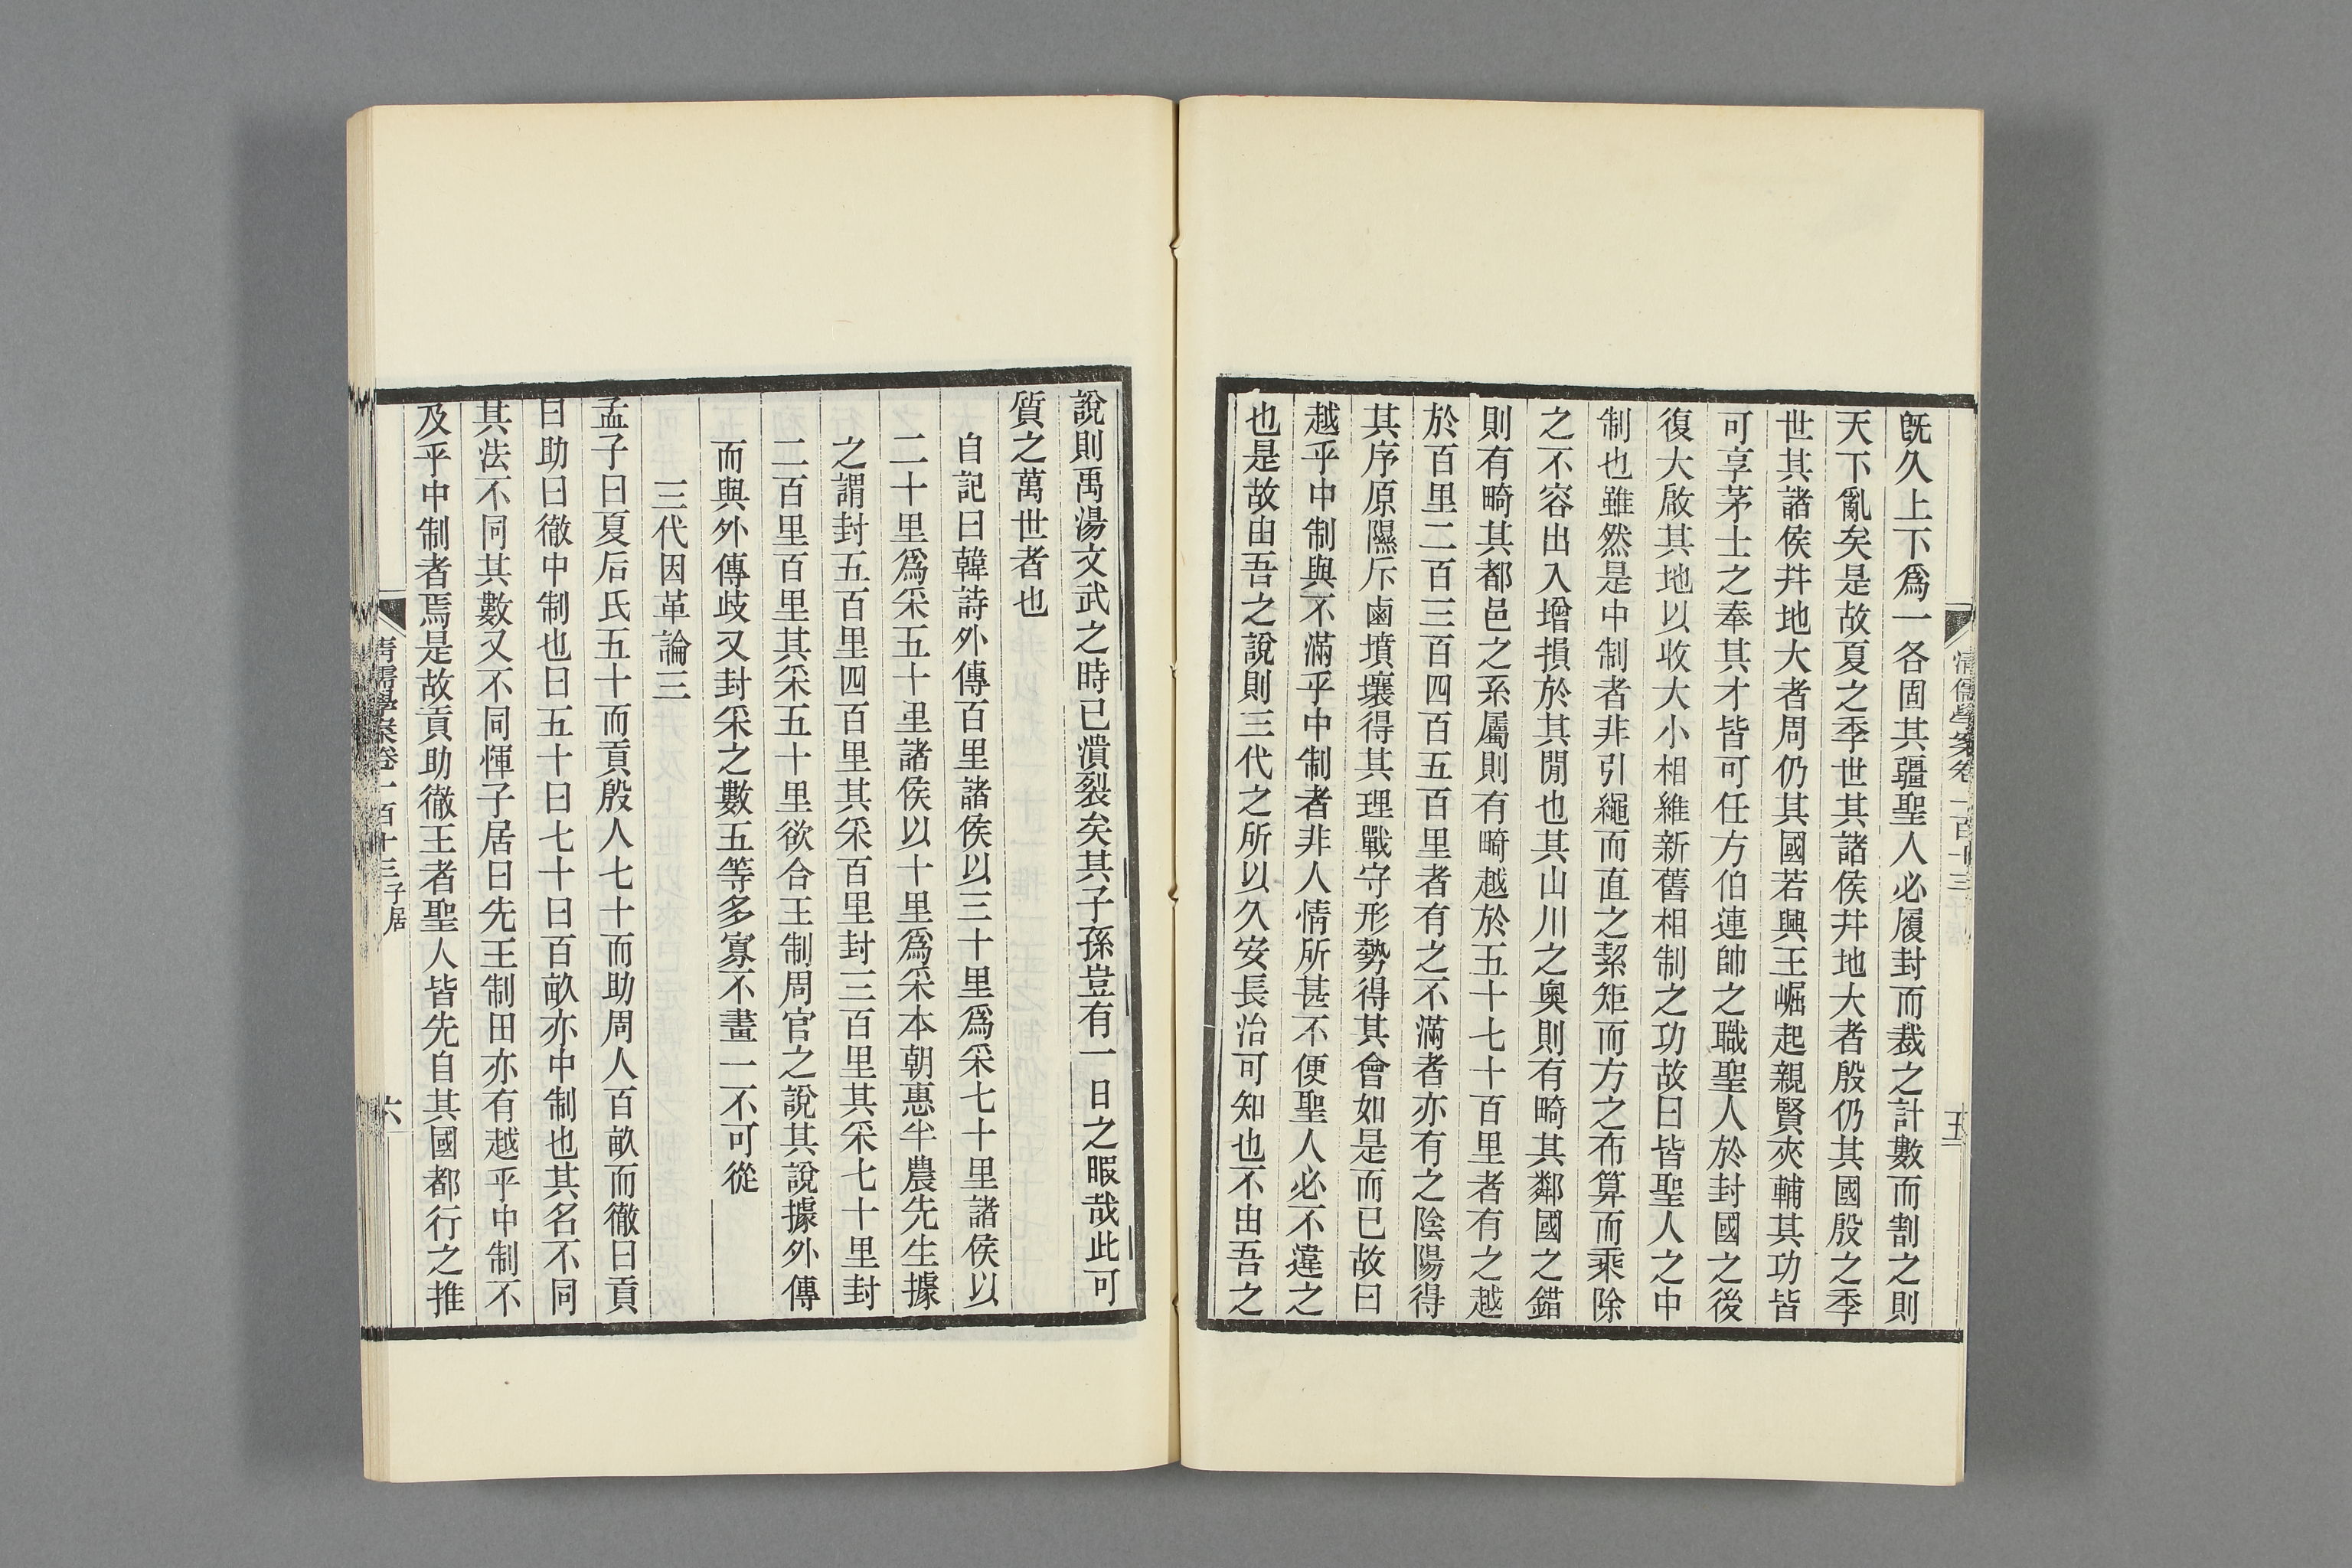 清儒學案卷一百十三
五
既久上下爲一各固其疆聖人必履封而裁之計數而割之則
天下亂矣是故夏之季世其諸侯井地大者殷仍其國殷之季
世其諸侯井地大者周仍其國若興王崛起親賢夾輔其功皆
可享茅土之奉其才皆可任方伯連帥之職聖人於封國之後
復大啟其地以收大小相維新舊相制之功故曰皆聖人之中
制也雖然是中制者非引繩而直之絜矩而方之布算而乘除
之不容出入增損於其閒也其山川之奧則有畸其鄰國之錯
則有畸其都邑之系屬則有畸越於五十七十百里者有之越
於百里二百三百四百五百里者有之不滿者亦有之陰陽得
其序原隰斥鹵墳壤得其理戰守形勢得其會如是而已故曰
越乎中制與不滿乎中制者非人情所甚不便聖人必不違之
也是故由吾之說則三代之所以久安長治可知也不由吾之
說則禹湯文武之時已潰裂矣其子孫豈有一日之暇哉此可
質之萬世者也
自記曰韓詩外傳百里諸侯以三十里爲采七十里諸侯以
二十里爲采五十里諸侯以十里爲采本朝惠半農先生據
之謂封五百里四百里其采百里封三百里其采七十里封
二百里百里其采五十里欲合王制周官之說其說據外傳
而與外傳歧又封采之數五等多寡不畫一不可從
三代因革論三
孟子曰夏后氏五十而貢殷人七十而助周人百畝而徹曰貢
曰助曰徹中制也曰五十曰七十曰百畝亦中制也其名不同
其法不同其數又不同惲子居曰先王制田亦有越乎中制不
及乎中制者焉是故貢助徹王者聖人皆先自其國都行之推
清儒學案卷一百十三 子居
六